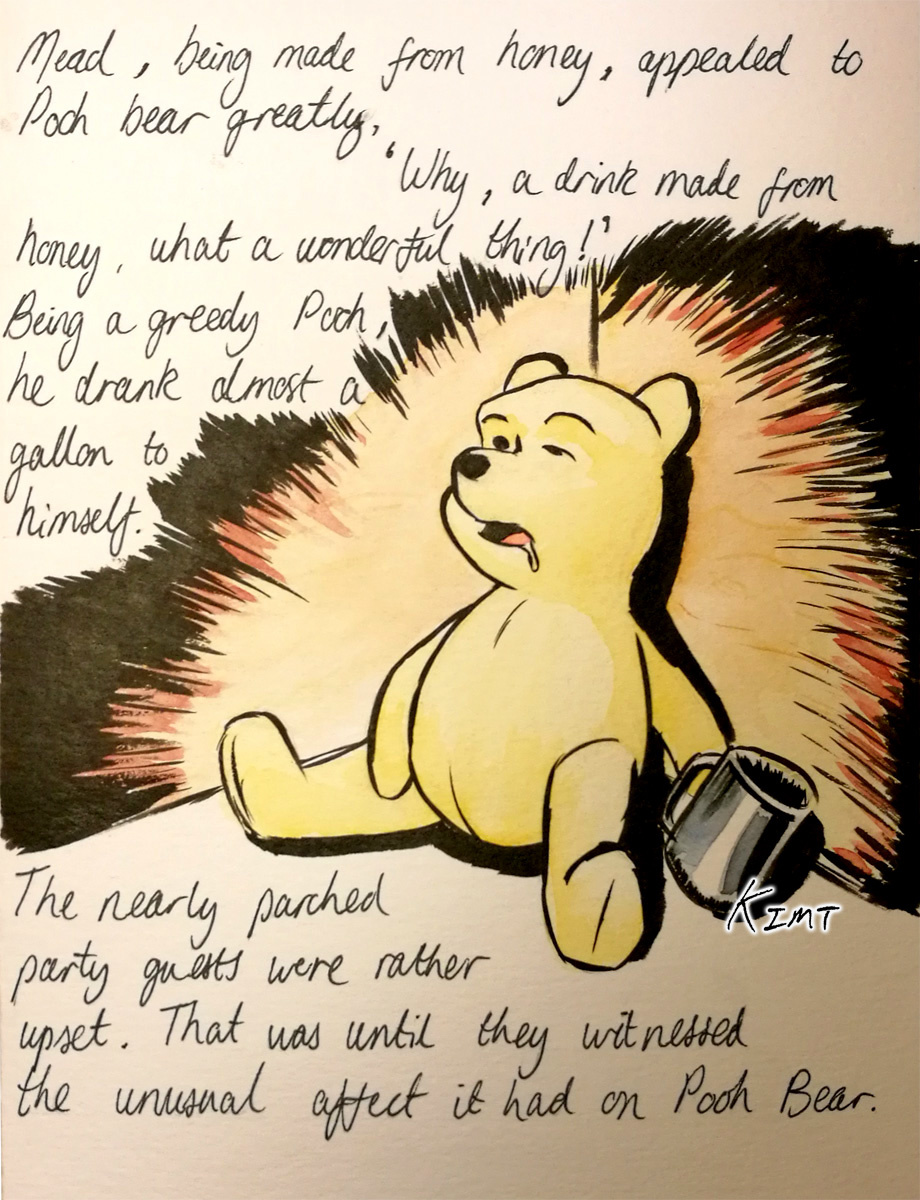 Mead, being made from honey, appealed to
Pooh bear greatly,
'Why, a drink made from
honey, what a wonderful thing!'
Being a greedy Pooh,
he drank almost a
gallon to
himself.
KIMT
The nearly parched
party guests were rather
upset. That was until they witnessed
the unusual affect it had on Pooh Bear.